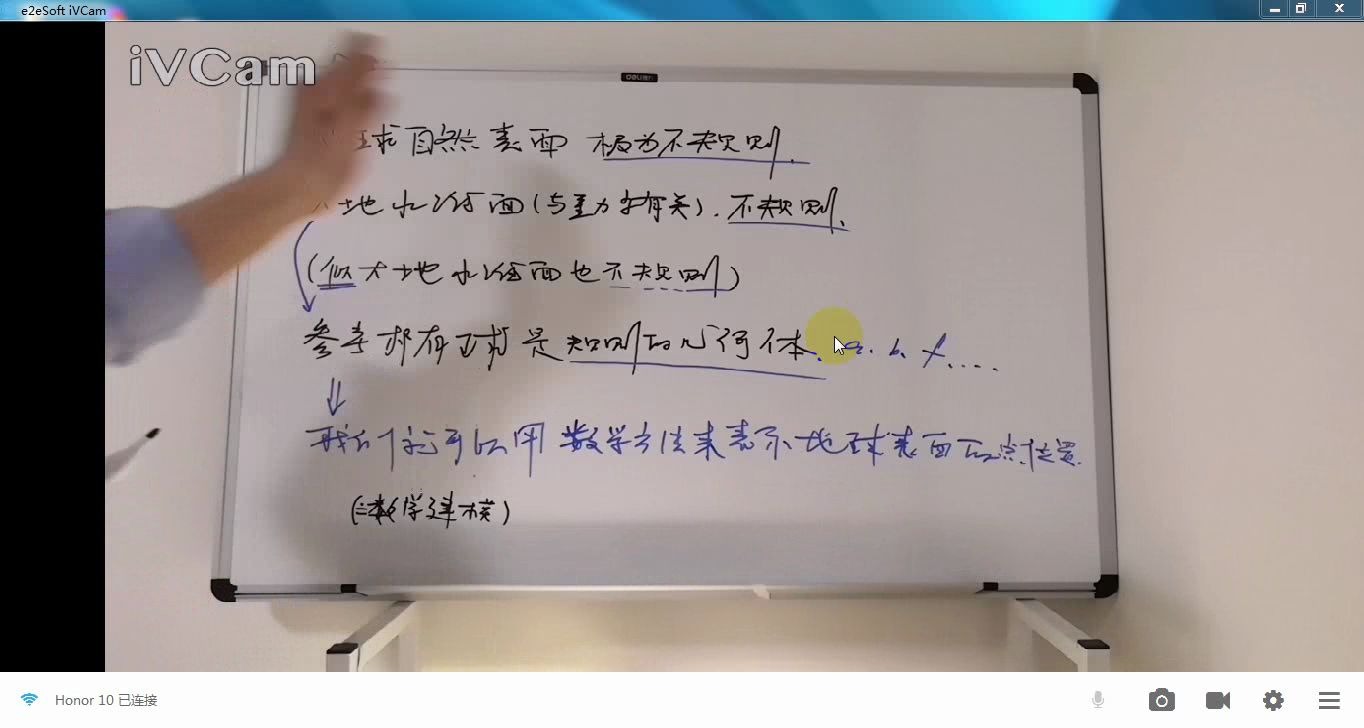 e2eSoft iVCam
iVCam
deli
球自然表面 极为不规则.
地水准面(与重力有关). 不规则.
(似大地水准面也不规则)
参考椭球是规则的几何体. a. b. f....
⇓
我们才可以用数学方法来表示地球表面的点位置.
(数学建模)
Honor 10 已连接